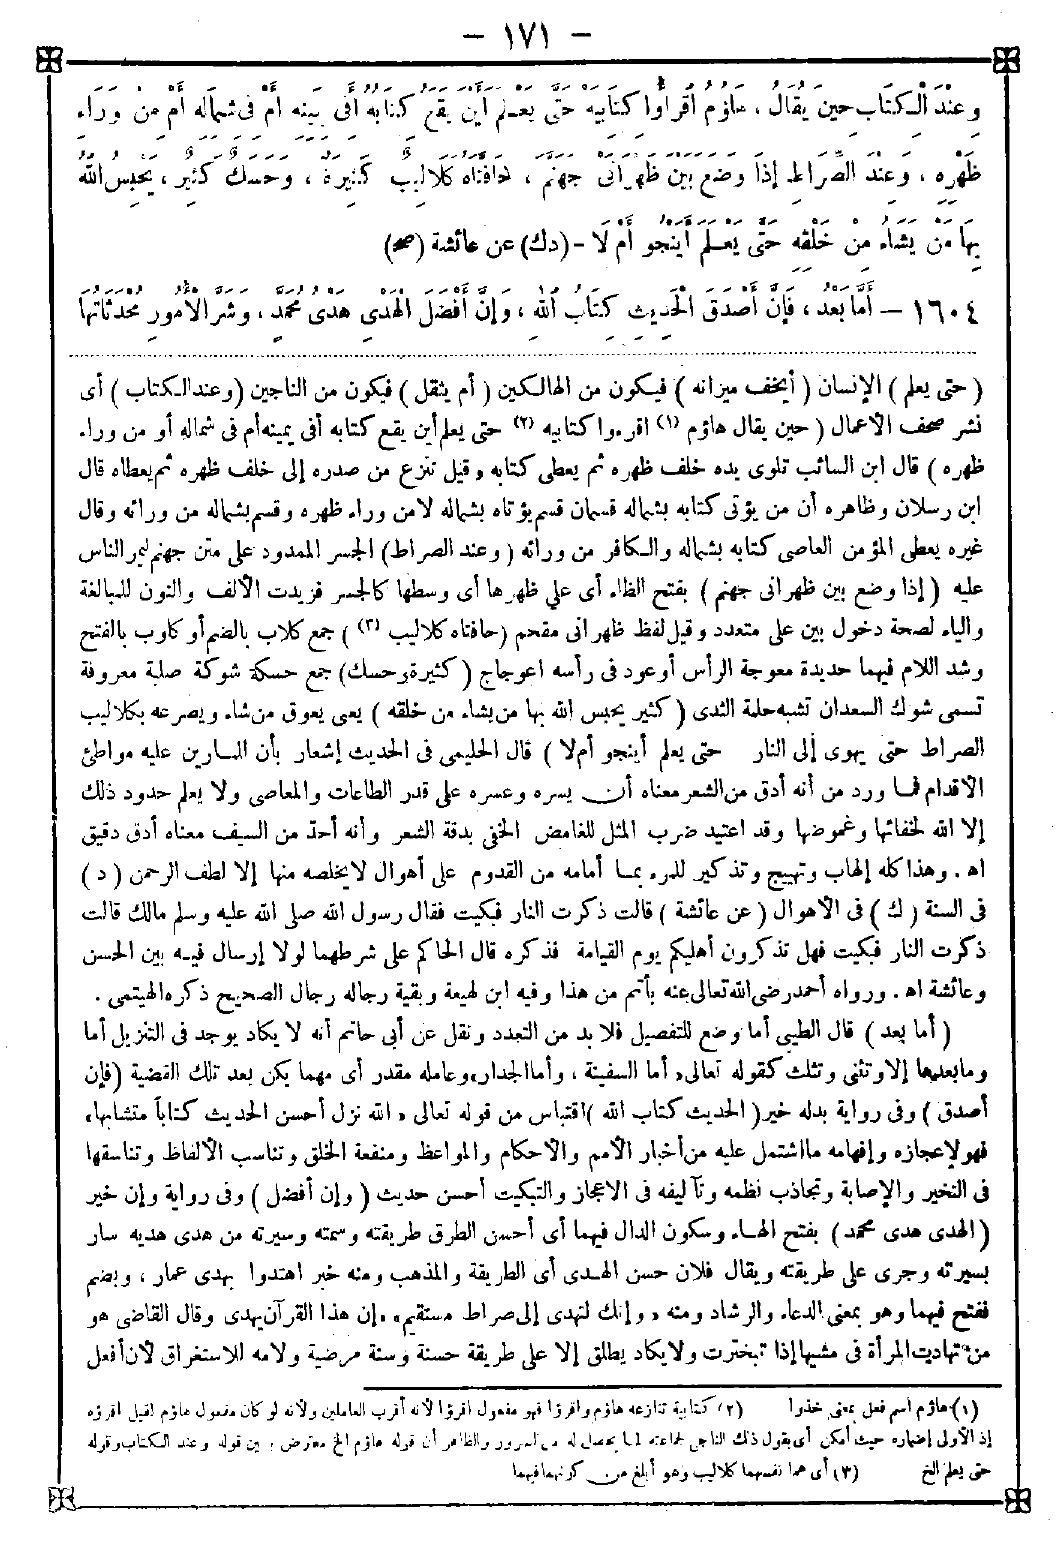 – ١٧١ –
وَعِنْدَ الْكِتَابِ حِينَ يُقَالُ ، هَاؤُمُ اقْرَأُوا كِتَابِيَهْ حَتَّى يَعْلَمَ أَيْنَ يَقَعُ كِتَابُهُ أَفِى يَمِينِهِ أَمْ فِى شِمَالِهِ أَمْ مِنْ وَرَاءِ
ظَهْرِهِ ، وَعِنْدَ الصِّرَاطِ إِذَا وُضِعَ بَيْنَ ظَهْرَانَىْ جَهَنَّمَ ، حَافَتَاهُ كَلَالِيبُ كَثِيرَةٌ ، وَحَسَكٌ كَثِيرٌ ، يَحْبِسُ اللهُ
بِهَا مَنْ يَشَاءُ مِنْ خَلْقِهِ حَتَّى يَعْلَمَ أَيَنْجُو أَمْ لَا - (دك) عن عائشة (صح)
١٦٠٤ – أَمَّا بَعْدُ ، فَإِنَّ أَصْدَقَ الْحَدِيثِ كِتَابُ اللهِ ، وَإِنَّ أَفْضَلَ الْهَدْىِ هَدْىُ مُحَمَّدٍ ، وَشَرُّ الْأُمُورِ مُحْدَثَاتُهَا
( حتى يعلم ) الإنسان ( أيخف ميزانه ) فيكون من الهالكين ( أم يثقل ) فيكون من الناجين (وعند الكتاب ) أى
نشر صحف الأعمال ( حين يقال هاؤم (١) اقرءوا كتابيه (٢) حتى يعلم أين يقع كتابه أفى يمينه أم فى شماله أو من وراء
ظهره ) قال ابن السائب تلوى يده خلف ظهره ثم يعطى كتابه وقيل تنزع من صدره إلى خلف ظهره ثم يعطاه قال
ابن رسلان وظاهره أن من يؤتى كتابه بشماله قسمان قسم يؤتاه بشماله لا من وراء ظهره وقسم بشماله من ورائه وقال
غيره يعطى المؤمن العاصى كتابه بشماله والكافر من ورائه ( وعند الصراط) الجسر الممدود على متن جهنم ليمر الناس
عليه ( إذا وضع بين ظهرانى جهنم ) بفتح الظاء أى على ظهرها أى وسطها كالجسر فزيدت الألف والنون للمبالغة
والياء لصحة دخول بين على متعدد وقيل لفظ ظهرانى مقحم (حافتاه كلاليب (٣) ) جمع كلاب بالضم أو كلوب بالفتح
وشد اللام فيهما حديدة معوجة الرأس أو عود فى رأسه اعوجاج ( كثيرة وحسك) جمع حسكة شوكة صلبة معروفة
تسمى شوك السعدان تشبه حلمة الثدى ( كثير يحبس الله بها من يشاء من خلقه ) يعى يعوق من شاء ويصرعه بكلاليب
الصراط حتى يهوى إلى النار حتى يعلم أينجو أم لا ) قال الحليمى فى الحديث إشعار بأن المارين عليه مواطئ
الأقدام فما ورد من أنه أدق من الشعر معناه أن يسره وعسره على قدر الطاعات والمعاصى ولا يعلم حدود ذلك
إلا الله لخفائها وغموضها وقد اعتيد ضرب المثل للغامض الخفى بدقة الشعر وأنه أحدّ من السيف معناه أدق دقيق
اه . وهذا كله إلهاب وتهييج وتذكير للمرء بما أمامه من القدوم على أهوال لا يخلصه منها إلا لطف الرحمن ( د )
فى السنة ( ك ) فى الأهوال ( عن عائشة ) قالت ذكرت النار فبكيت فقال رسول الله صلى الله عليه وسلم مالك قالت
ذكرت النار فبكيت فهل تذكرون أهليكم يوم القيامة فذكره قال الحاكم على شرطهما لولا إرسال فيه بين الحسن
وعائشة اه . ورواه أحمد رضى الله تعالى عنه بأتم من هذا وفيه ابن لهيعة وبقية رجاله رجال الصحيح ذكره الهيتمى .
( أما بعد ) قال الطيبى أما وضع للتفصيل فلا بد من التعدد ونقل عن أبى حاتم أنه لا يكاد يوجد فى التنزيل أما
وما بعدها إلا وتثنى وتثلث كقوله تعالى « أما السفينة ، وأما الجدار » وعامله مقدر أى مهما يكن بعد تلك القضية (فإن
أصدق ) وفى رواية بدله خير( الحديث كتاب الله ) اقتباس من قوله تعالى « الله نزل أحسن الحديث كتاباً متشابها »
فهو لإعجازه وإفهامه ما اشتمل عليه من أخبار الأمم والأحكام والمواعظ ومنفعة الخلق وتناسب الألفاظ وتناسقها
فى التخير والإصابة وتجاذب نظمه وتآليفه فى الاعجاز والتبكيت أحسن حديث ( وإن أفضل ) وفى رواية وإن خير
( الهدى هدى محمد ) بفتح الهاء وسكون الدال فيهما أى أحسن الطرق طريقته وسمته وسيرته من هدى هديه سار
بسيرته وجرى على طريقته ويقال فلان حسن الهدى أى الطريقة والمذهب ومنه خبر اهتدوا بهدى عمار ، وبضم
ففتح فيهما وهو بمعنى الدعاء والرشاد ومنه « وإنك لتهدى إلى صراط مستقيم » «إن هذا القرآن يهدى» وقال القاضى هو
من تهاديت المرأة فى مشيها إذا تبخترت ولا يكاد يطلق إلا على طريقة حسنة وسنة مرضية ولامه للاستغراق لأن أفعل
(١) هاؤم اسم فعل بمعنى خذوا (٢) كتابية تنازعه هاؤم واقرؤا فهو مفعول اقرؤا لأنه أقرب العاملين ولأنه لو كان مفعول هاؤم لقيل اقرؤه
إذ الأولى إضماره حيث أمكن أى يقول ذلك الناجى لجماعته لما يحصل له من السرور والظاهر أن قوله هاؤم الخ معترض بين قوله وعند الكتاب وقوله
حتى يعلم الخ (٣) أى هما نفسهما كلاليب وهو أبلغ من كونهما فيهما